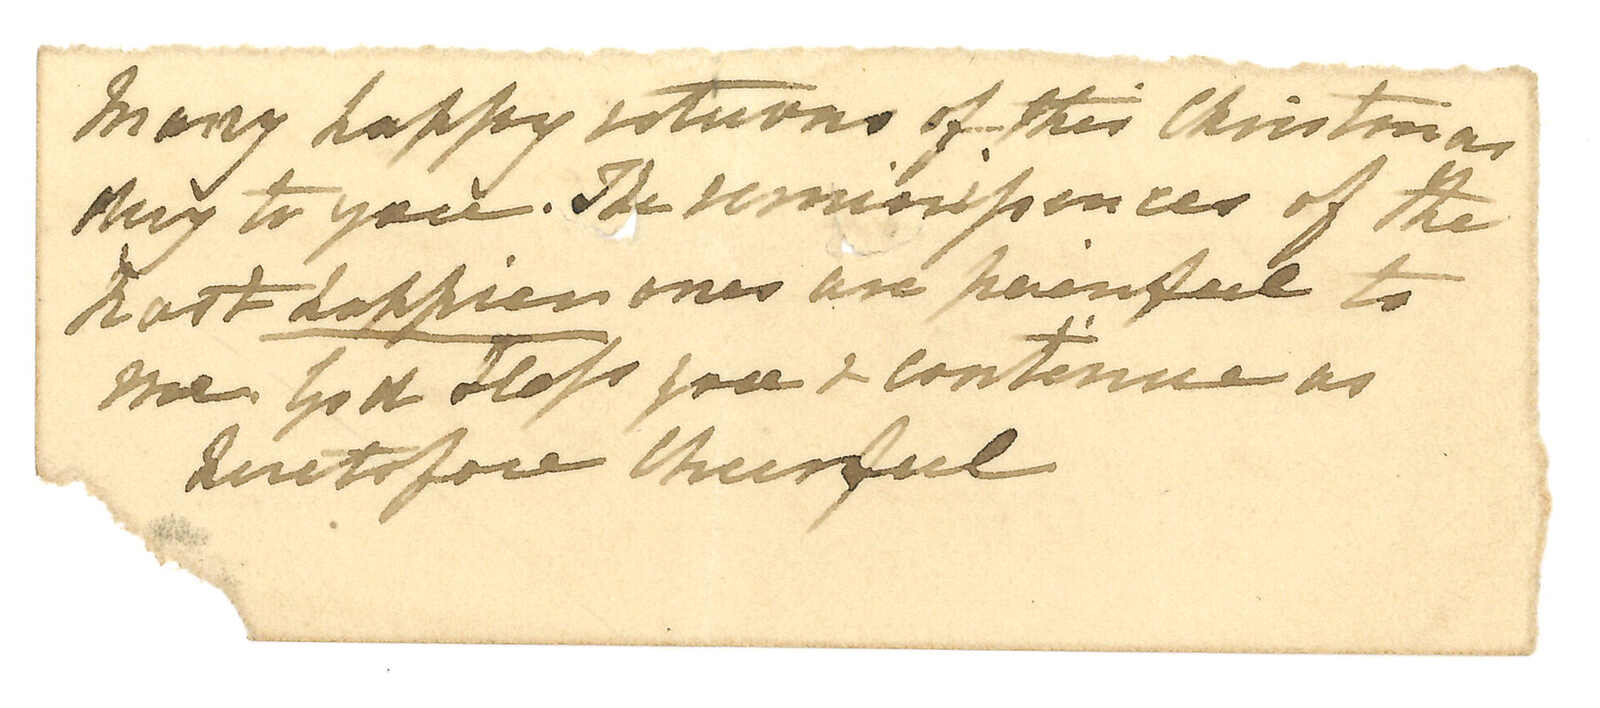 Many happy returns of this Christmas
day to you. The reminispences of the
past happier ones are painful to
me. God bless you & continue as
heretofore Cheerful